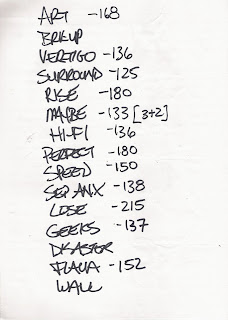 ART -168
BRKUP
VERTIGO -136
SURROUND -125
RISE -180
MAYBE -133 [3+2]
HI-FI -136
PERFECT -180
SPEED -150
SEP ANX -138
LOSE -215
GEEKS -137
DISASTER
FLAVA -152
WALL